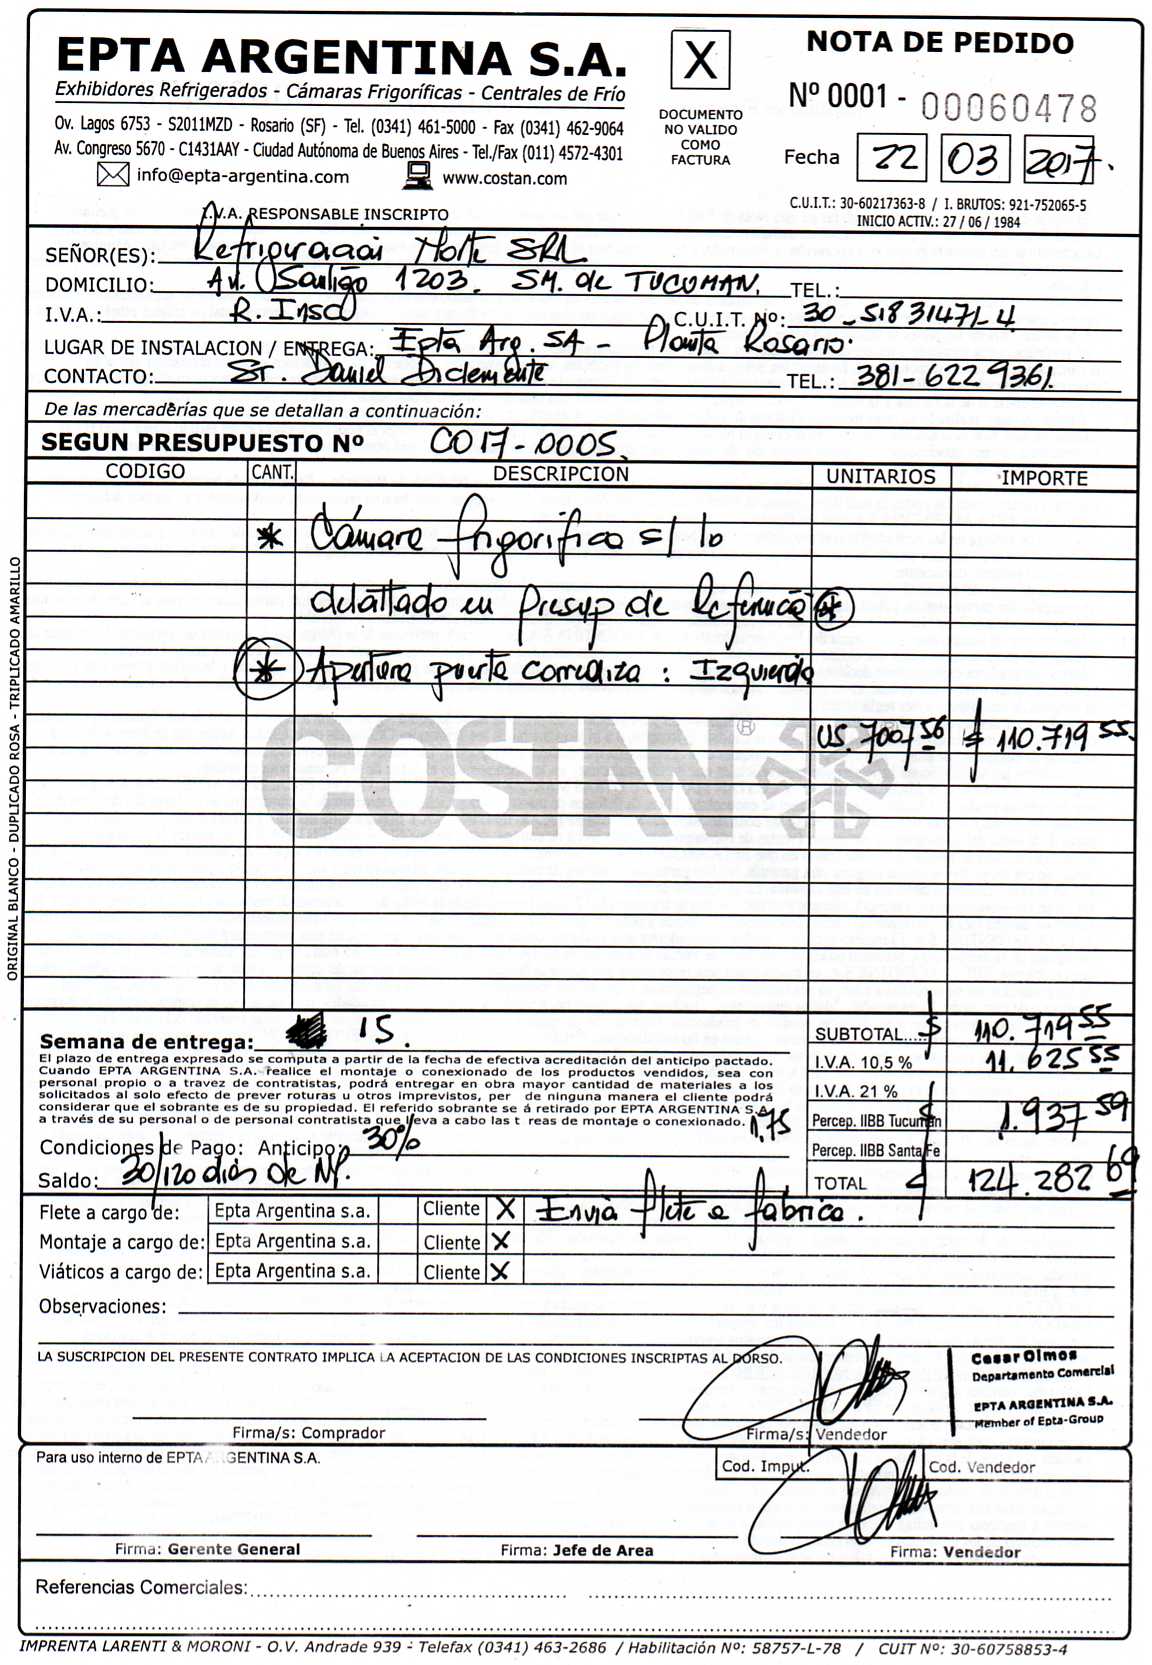 EPTA ARGENTINA S.A.
Exhibidores Refrigerados - Cámaras Frigoríficas - Centrales de Frío
Ov. Lagos 6753 - S2011MZD - Rosario (SF) - Tel. (0341) 461-5000 - Fax (0341) 462-9064
Av. Congreso 5670 - C1431AAY - Ciudad Autónoma de Buenos Aires - Tel./Fax (011) 4572-4301
info@epta-argentina.com www.costan.com
I.V.A. RESPONSABLE INSCRIPTO
X
DOCUMENTO
NO VALIDO
COMO
FACTURA
NOTA DE PEDIDO
Nº 0001 - 00060478
Fecha 22 03 2017.
C.U.I.T.: 30-60217363-8 / I. BRUTOS: 921-752065-5
INICIO ACTIV.: 27 / 06 / 1984
SEÑOR(ES): Refrigeración Norte SRL
DOMICILIO: Av. Santiago 1203. SM. de TUCUMAN. TEL.:
I.V.A.: R. Insc C.U.I.T. Nº: 30-51831471-4
LUGAR DE INSTALACION / ENTREGA: Epta Arg. SA - Planta Rosario.
CONTACTO: Sr. Daniel Diclemente TEL.: 381-6229361.
De las mercaderías que se detallan a continuación:
SEGUN PRESUPUESTO Nº CO17-0005.
CODIGO CANT. DESCRIPCION UNITARIOS IMPORTE
* Cámara frigorífica s/ lo
detallado en Presup de Referencia *
* Apertura puerta corrediza : Izquierda
US. 7007 56 $ 110.719 55.
COSTAN ®
ORIGINAL BLANCO - DUPLICADO ROSA - TRIPLICADO AMARILLO
Semana de entrega: 15.
El plazo de entrega expresado se computa a partir de la fecha de efectiva acreditación del anticipo pactado.
Cuando EPTA ARGENTINA S.A. realice el montaje o conexionado de los productos vendidos, sea con
personal propio o a travez de contratistas, podrá entregar en obra mayor cantidad de materiales a los
solicitados al solo efecto de prever roturas u otros imprevistos, per de ninguna manera el cliente podrá
considerar que el sobrante es de su propiedad. El referido sobrante se á retirado por EPTA ARGENTINA S.A.
a través de su personal o de personal contratista que lleva a cabo las t reas de montaje o conexionado.
Condiciones de Pago: Anticipo: 30%
Saldo: 30/120 dias de NP.
SUBTOTAL..... $ 110.719 55
I.V.A. 10,5 % 11.625 55
I.V.A. 21 %
1,75 Percep. IIBB Tucumán $ 1.937 59
Percep. IIBB Santa Fe
TOTAL $ 124.282 69
Flete a cargo de: Epta Argentina s.a. Cliente X Envia flete a fabrica.
Montaje a cargo de: Epta Argentina s.a. Cliente X
Viáticos a cargo de: Epta Argentina s.a. Cliente X
Observaciones:
LA SUSCRIPCION DEL PRESENTE CONTRATO IMPLICA LA ACEPTACION DE LAS CONDICIONES INSCRIPTAS AL DORSO.
Cesar Olmos
Departamento Comercial
EPTA ARGENTINA S.A.
Member of Epta-Group
Firma/s: Comprador Firma/s: Vendedor
Para uso interno de EPTA ARGENTINA S.A.
Cod. Imput. Cod. Vendedor
Firma: Gerente General Firma: Jefe de Area Firma: Vendedor
Referencias Comerciales:
IMPRENTA LARENTI & MORONI - O.V. Andrade 939 - Telefax (0341) 463-2686 / Habilitación Nº: 58757-L-78 / CUIT Nº: 30-60758853-4